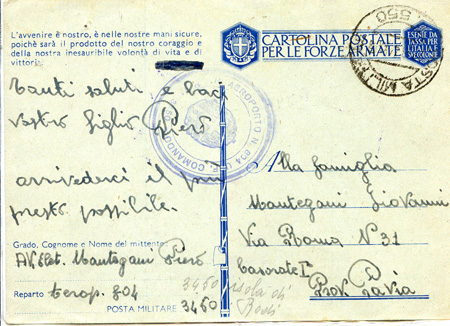 L'avvenire è nostro, è nelle nostre mani sicure,
poichè sarà il prodotto del nostro coraggio e
della nostra inesauribile volontà di vita e di
vittoria.
CARTOLINA POSTALE
PER LE FORZE ARMATE
ESENTE DA
TASSA PER
L'ITALIA E
SPEDIZIONE
POSTA MIL
550
Tanti saluti e baci
vostro figlio Piero
arrivederci il più
presto possibile.
COMANDO AEROPORTO N. 804
Alla famiglia
Mantegani Giovanni
Via Roma N° 31
Casorate I°
Prov. Pavia
Grado, Cognome e Nome del mittente
Mantegani Piero
Reparto aerop. 804
POSTA MILITARE 3450
3450 isola di
Rodi